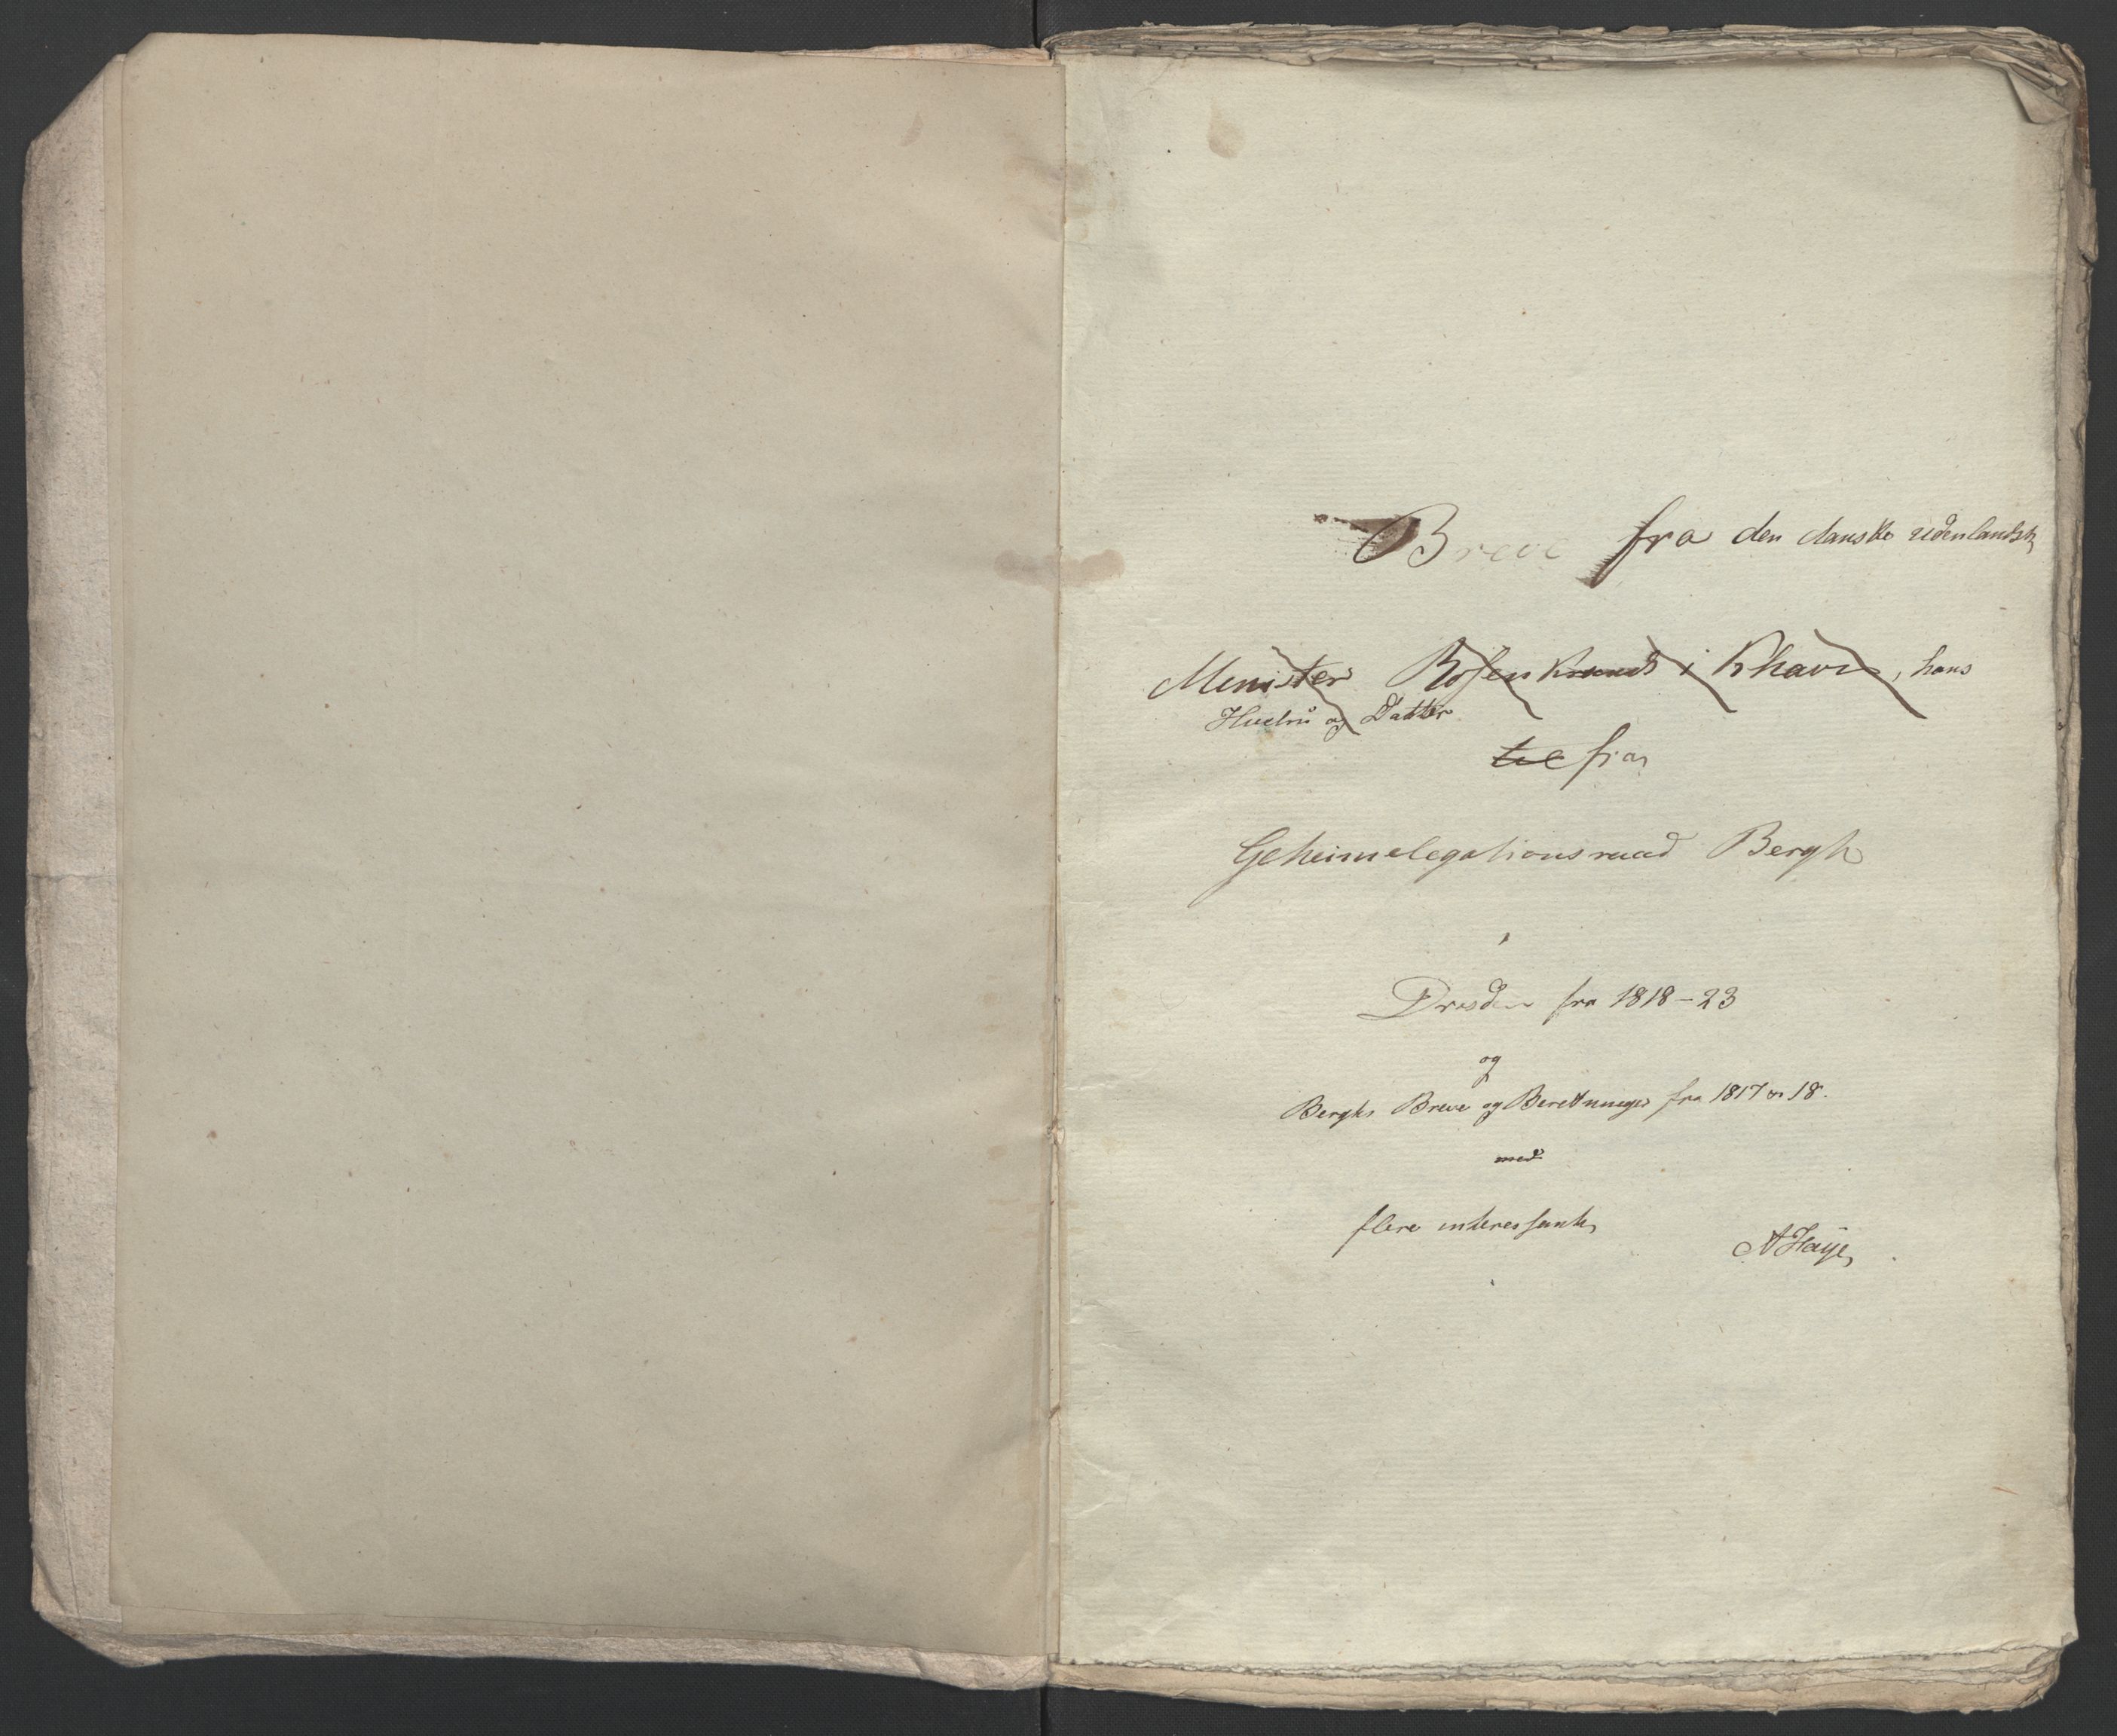 Breve fra den danske udenlandske
Minister Rosenkrands i Khavn, hans
Hustru og Datter
til fra
Geheimelegationsraad Bergh
i
Dresden fra 1818-23
og
Berghs Breve og Beretninger fra 1817 og 18.
med
flere interessante